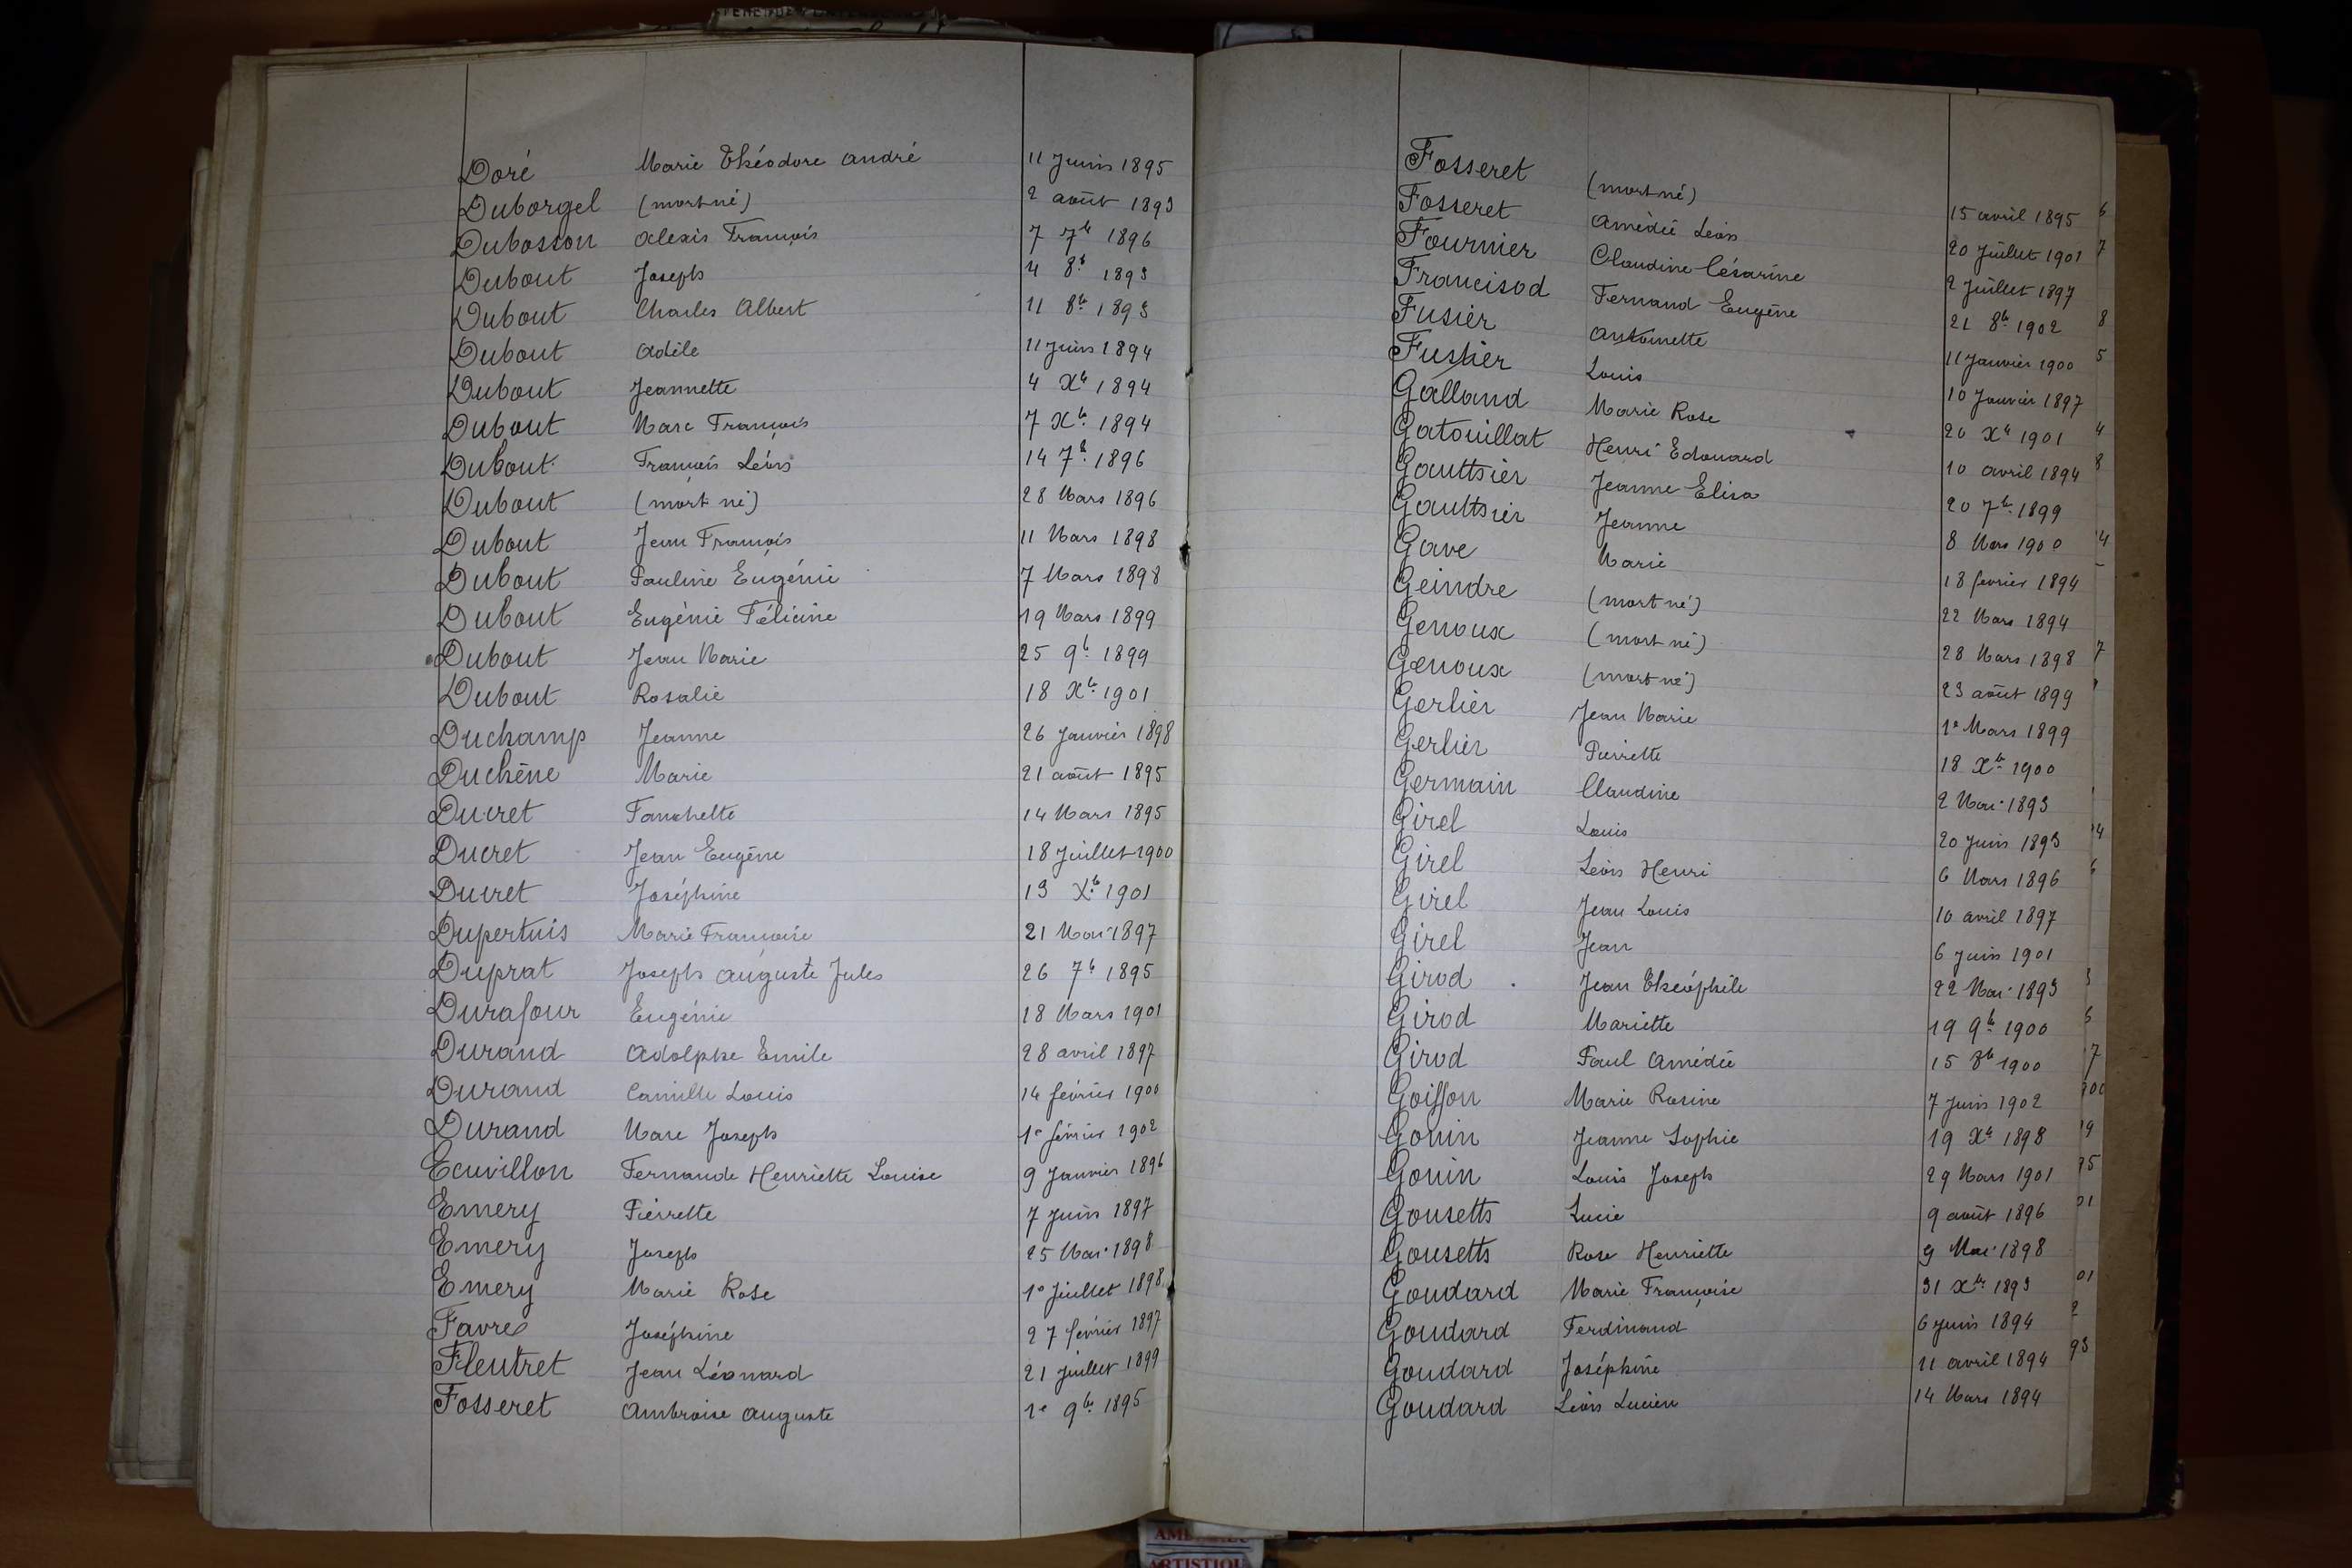 Doré Marie Théodore André 11 Juin 1895
Duborgel (mort né) 2 août 1893
Dubosson Alexis François 7 7bre 1896
Dubout Joseph 4 8bre 1893
Dubout Charles Albert 11 8bre 1893
Dubout Adèle 11 Juin 1894
Dubout Jeannette 4 Xbre 1894
Dubout Marc François 7 Xbre 1894
Dubout François Léon 14 7bre 1896
Dubout (mort né) 28 Mars 1896
Dubout Jean François 11 Mars 1898
Dubout Pauline Eugénie 7 Mars 1898
Dubout Eugénie Félicine 19 Mars 1899
Dubout Jean Marie 25 9bre 1899
Dubout Rosalie 18 Xbre 1901
Duchamp Jeanne 26 Janvier 1898
Duchêne Marie 21 août 1895
Ducret Fanchette 14 Mars 1895
Ducret Jean Eugène 18 Juillet 1900
Ducret Joséphine 13 Xbre 1901
Dupertuis Marie Françoise 21 Mai 1897
Duprat Joseph Auguste Jules 26 7bre 1895
Durafour Eugénie 18 Mars 1901
Durand Adolphe Emile 28 avril 1897
Durand Camille Louis 14 février 1900
Durand Marc Joseph 1er février 1902
Ecuvillon Fernande Henriette Louise 9 Janvier 1896
Emery Pierrette 7 Juin 1897
Emery Joseph 25 Mai 1898
Emery Marie Rose 1er Juillet 1898
Favre Joséphine 27 février 1897
Fleutret Jean Léonard 21 Juillet 1899
Fosseret Ambroise Auguste 1er 9bre 1895
Fosseret (mort né) 15 avril 1895
Fosseret Amédée Léon 20 Juillet 1901
Fournier Claudine Césarine 2 Juillet 1897
Francisod Fernand Eugène 21 8bre 1902
Fusier Antoinette 11 Janvier 1900
Fusier Louis 10 Janvier 1897
Galland Marie Rose 20 Xbre 1901
Gatouillat Henri Edouard 10 avril 1894
Gaulthier Jeanne Elisa 20 7bre 1899
Gaulthier Jeanne 8 Mars 1900
Gave Marie 18 fevrier 1894
Geindre (mort né) 22 Mars 1894
Genoux (mort né) 28 Mars 1898
Genoux (mort né) 23 août 1899
Gerlier Jean Marie 1er Mars 1899
Gerlier Pierrette 18 Xbre 1900
Germain Claudine 2 Mai 1893
Girel Louis 20 Juin 1893
Girel Léon Henri 6 Mars 1896
Girel Jean Louis 10 avril 1897
Girel Jean 6 Juin 1901
Girod Jean Théophile 22 Mai 1893
Girod Mariette 19 9bre 1900
Girod Paul Amédée 15 8bre 1900
Goisson Marie Rosine 7 Juin 1902
Gonin Jeanne Sophie 19 Xbre 1898
Gonin Louis Joseph 29 Mars 1901
Gonseth Lucie 9 août 1896
Gonseth Rose Henriette 9 Mai 1898
Goudard Marie Françoise 31 Xbre 1893
Goudard Ferdinand 6 Juin 1894
Goudard Joséphine 11 avril 1894
Goudard Léon Lucien 14 Mars 1894
ARTISTIQU